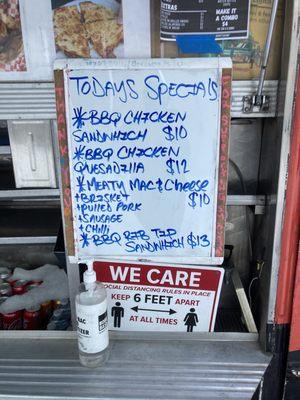 EXTRAS
MAKE IT
A COMBO
$4
TODAYS SPECIALS
*BBQ CHICKEN
SANDWHICH $10
*BBQ CHICKEN
QUESADILLA $12
*MEATY MAC & Cheese
+BRISKET $10
+PULLED PORK
+SAUSAGE
+CHILI
*BBQ RIB TIP
SANDWHICH $13
WE CARE
SOCIAL DISTANCING RULES IN EFFECT
KEEP 6 FEET APART
AT ALL TIMES